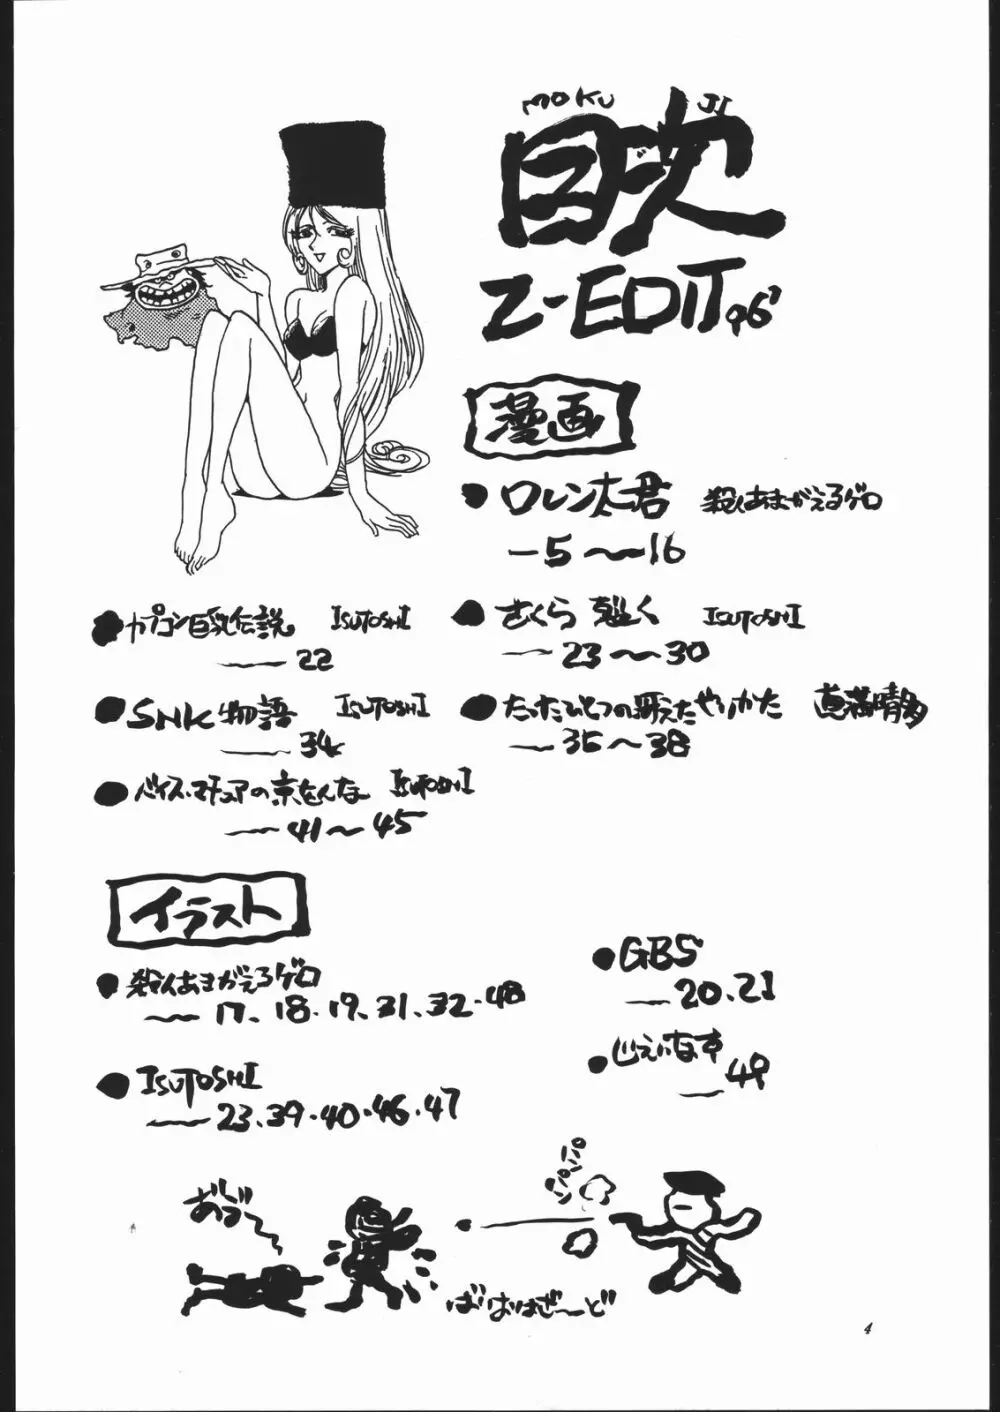 MOKU JI
目次
Z-EDIT 96'
漫画
●ロレン太君 殺人あまがえるゲロ
—5〜16
●カプコン巨乳伝説 ISUTOSHI
—22
●さくら 剋く ISUTOSHI
—23〜30
●SNK物語 ISUTOSHI
—34
●たったひとつの冴えたやりかた 真満晴多
—35〜38
●バイス・マチュアの京をんな ISUTOSHI
—41〜45
イラスト
●殺人あまがえるゲロ
—17、18・19、31、32・48
●GBS
—20、21
●ISUTOSHI
—23、39・40・46・47
●じえいなす
—49
パンパン
あづー
ばいおはざーど
4